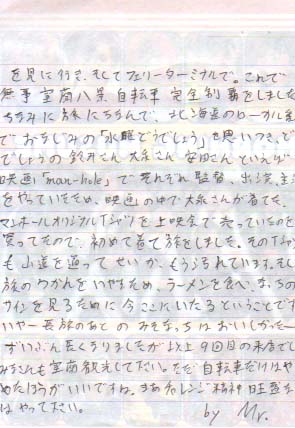 を見に行き、そしてフェリーターミナルで。これで
無事室蘭八景自転車完全制覇をしました
ちなみに旅にちなんで、北海道のローカル番
でおなじみの「水曜どうでしょう」を思いつき、ど
でしょうの鈴井さん大泉さん安田さんといえば
映画「man-hole」でそれぞれ監督、出演、主
をやっていたため、映画の中で大泉さんが着てた、
マンホールオリジナルTシャツを上映会で売っていたのを
買ってたので、初めて着て旅をしました。そのTシャ
も山道を通ってせいか、もう汚れています。そし
旅のつかれをいやすため、ラーメンを食べ、まっちの
サインを見るために今ここにいたるということです
いやー長旅のあとのみそまっちはおいしかったー
ずいぶん長くなりましたが以上9回目の来店でし
みなさんも室蘭観光して下さい。ただ自転車だけはや
めたほうがいいですね。まあチャレンジ精神旺盛な
はやって下さい。
by Mr.